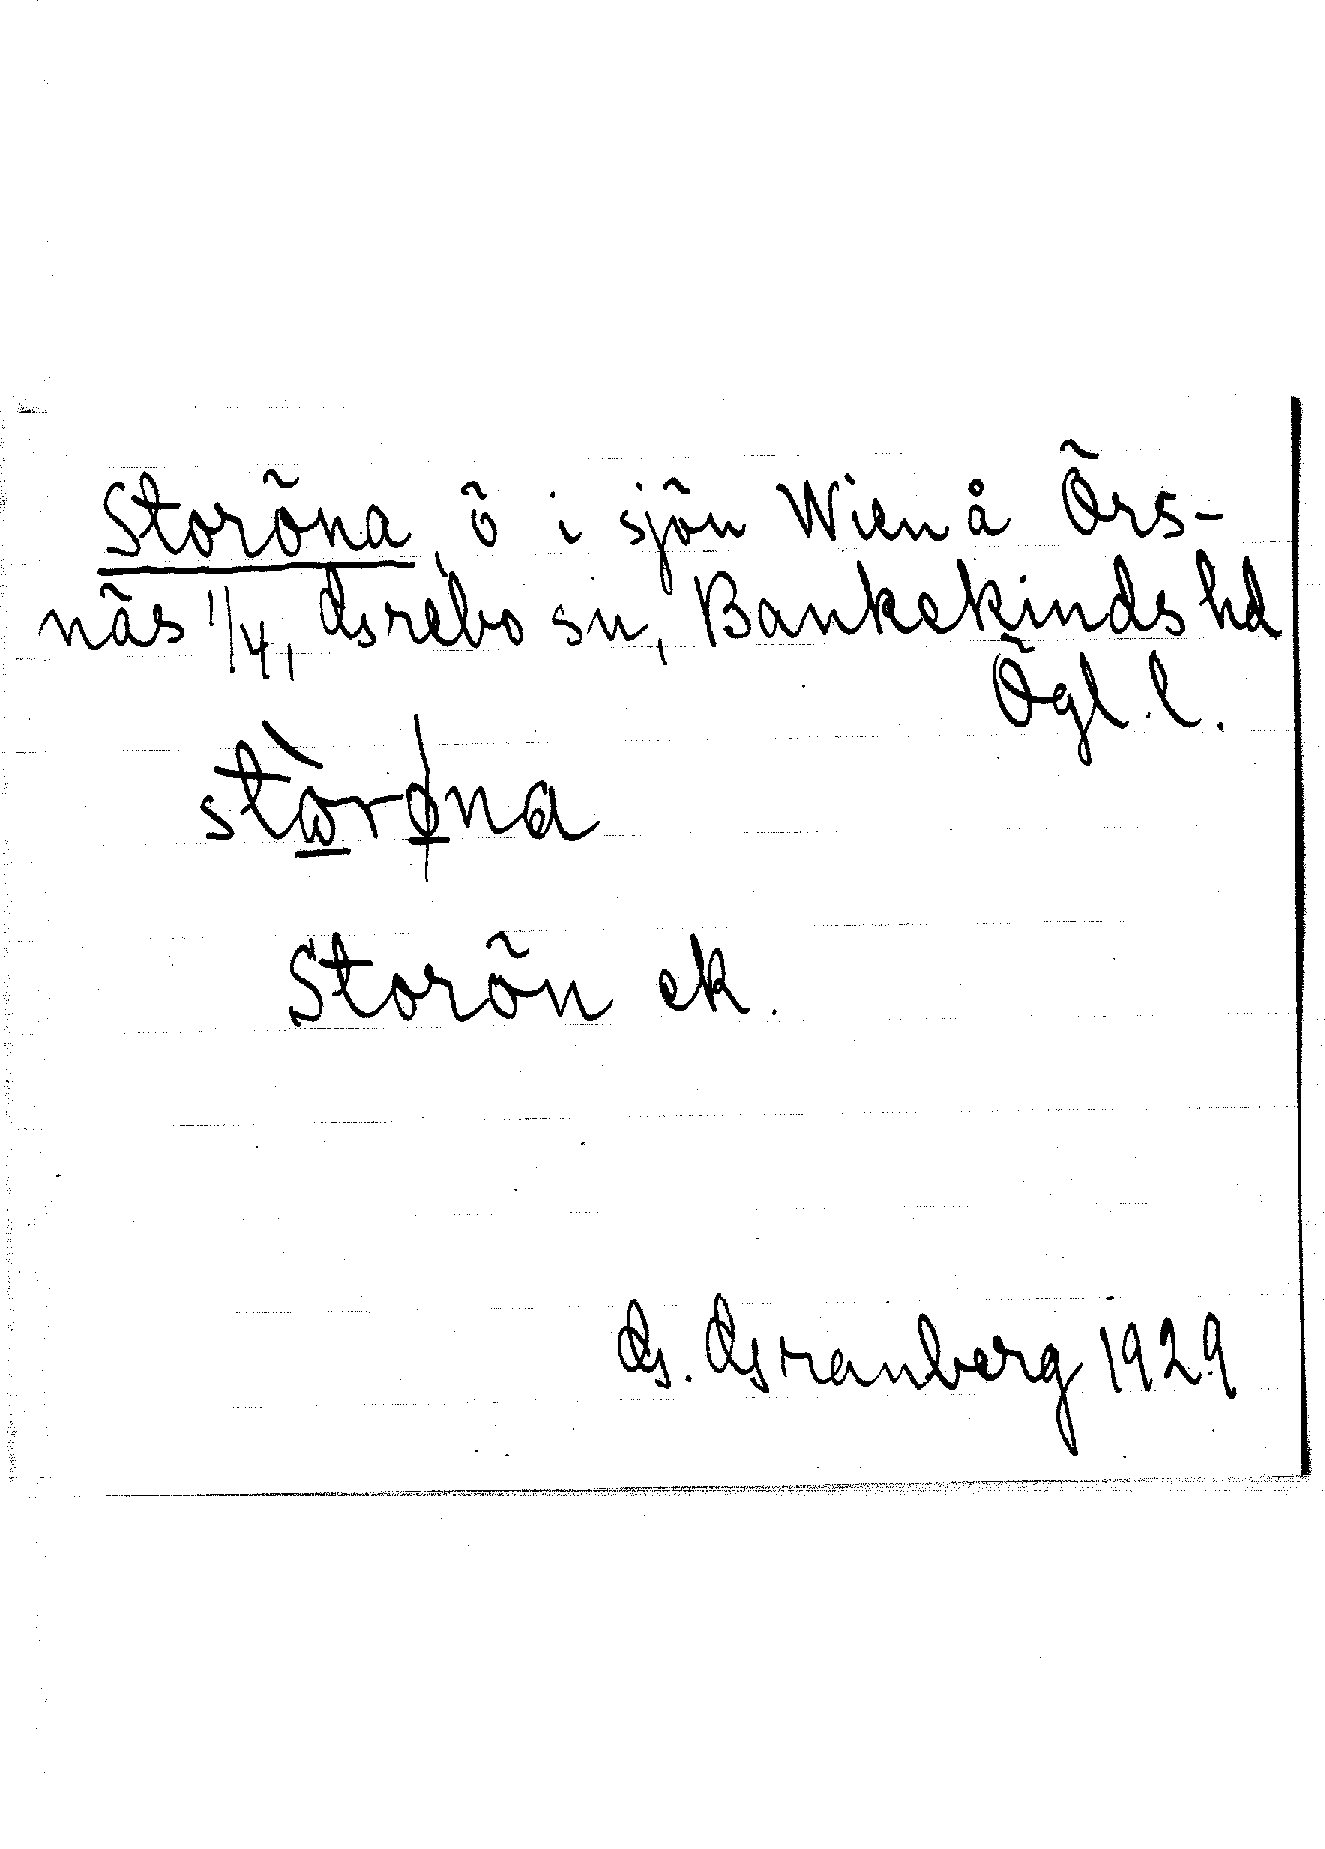 Storöna, ö i sjön Wien å Örs-
näs 1/4, Grebo sn, Bankekinds hd
Ögl. l.
stωrøna
Storön ek.
G. Granberg 1929